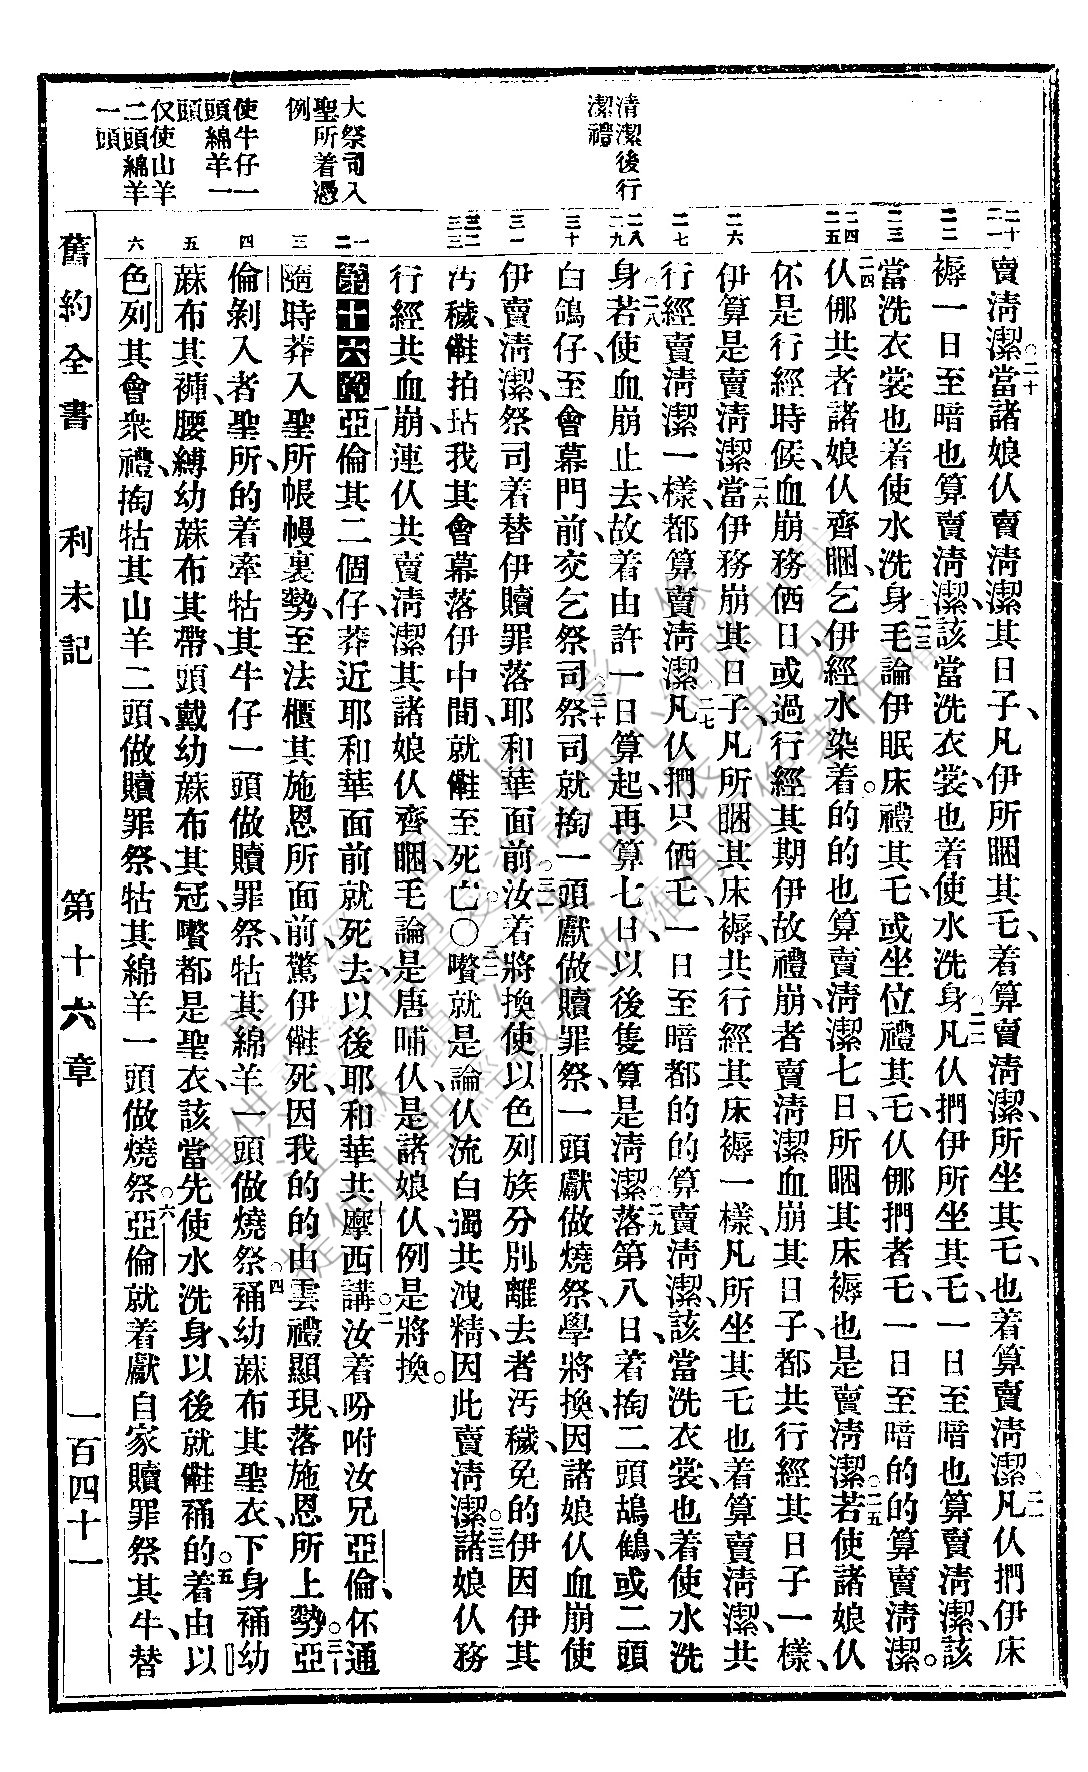 清潔後行
潔禮
大祭司入
聖所着憑
例
使牛仔一
頭綿羊一
頭
仅使山羊
二頭綿羊
一頭
賣清潔○二十當諸娘仈賣清潔其日子、凡伊所睏其乇着算賣清潔、所坐其乇、也着算賣清潔○二一凡仈捫伊床
褥一日至暗也算賣清潔、該當洗衣裳也着使水洗身○二二凡仈捫伊所坐其乇、一日至暗也算賣清潔、該
當洗衣裳也着使水洗身○二三毛論伊眠床禮其乇、或坐位禮其乇、仈倻捫者乇、一日至暗的的算賣清潔。
二四仈倻共者諸娘仈齊睏、乞伊經水染着。的的也算賣清潔七日、所睏其床褥也是賣清潔○二五若使諸娘仈
伓是行經時候、血崩務㑚日、或過行經其期伊故禮崩者賣清潔血崩其日子、都共行經其日子一樣、
伊算是賣清潔○二六當伊務崩其日子、凡所睏其床褥、共行經其床褥一樣、凡所坐其乇也着算賣清潔、共
行經賣清潔一樣、都算賣清潔○二七凡仈捫只㑚乇、一日至暗都的的算賣清潔、該當洗衣裳、也着使水洗
身○二八若使血崩止去、故着由許一日算起、再算七日、以後隻算是清潔○二九落第八日、着掏二頭鴣鶴、或二頭
白鴿仔、至會幕門前、交乞祭司○三十祭司就掏一頭獻做贖罪祭、一頭獻做燒祭、學將換、因諸娘仈血崩使
伊賣清潔、祭司着替伊贖罪落耶和華面前○三一汝着將換使以色列族分別、離去者汚穢、免的伊因伊其
汚穢、㒕拍玷我其會幕落伊中間、就㒕至死亡。〇三二嚽就是論仈流白濁、共洩精、因此賣清潔○三三諸娘仈務
行經共血崩、連仈共賣清潔其諸娘仈齊睏、毛論是唐晡仈、是諸娘仈、例是將換。
第十六章 一亞倫其二個仔、莽近耶和華面前就死去、以後耶和華共摩西講○二汝着吩咐汝兄亞倫、伓通
隨時莽入聖所帳幔裏勢、至法櫃其施恩所面前、驚伊㒕死、因我的的由雲禮顯現、落施恩所上勢○三亞
倫剝入者聖所、的着牽牯其牛仔一頭做贖罪祭、牯其綿羊一頭做燒祭○四䘼幼蔴布其聖衣、下身䘼幼
蔴布其褲、腰縛幼蔴布其帶、頭戴幼蔴布其冠、嚽都是聖衣、該當先使水洗身、以後就㒕䘼的○五着由以
色列其會衆禮、掏牯其山羊二頭、做贖罪祭、牯其綿羊一頭做燒祭○六亞倫就着獻自家贖罪祭其牛、替
二十
二一
二二
二三
二四
二五
二六
二七
二八
二九
三十
三一
三二
三三
一
二
三
四
五
六
舊約全書 利未記 第十六章 一百四十一